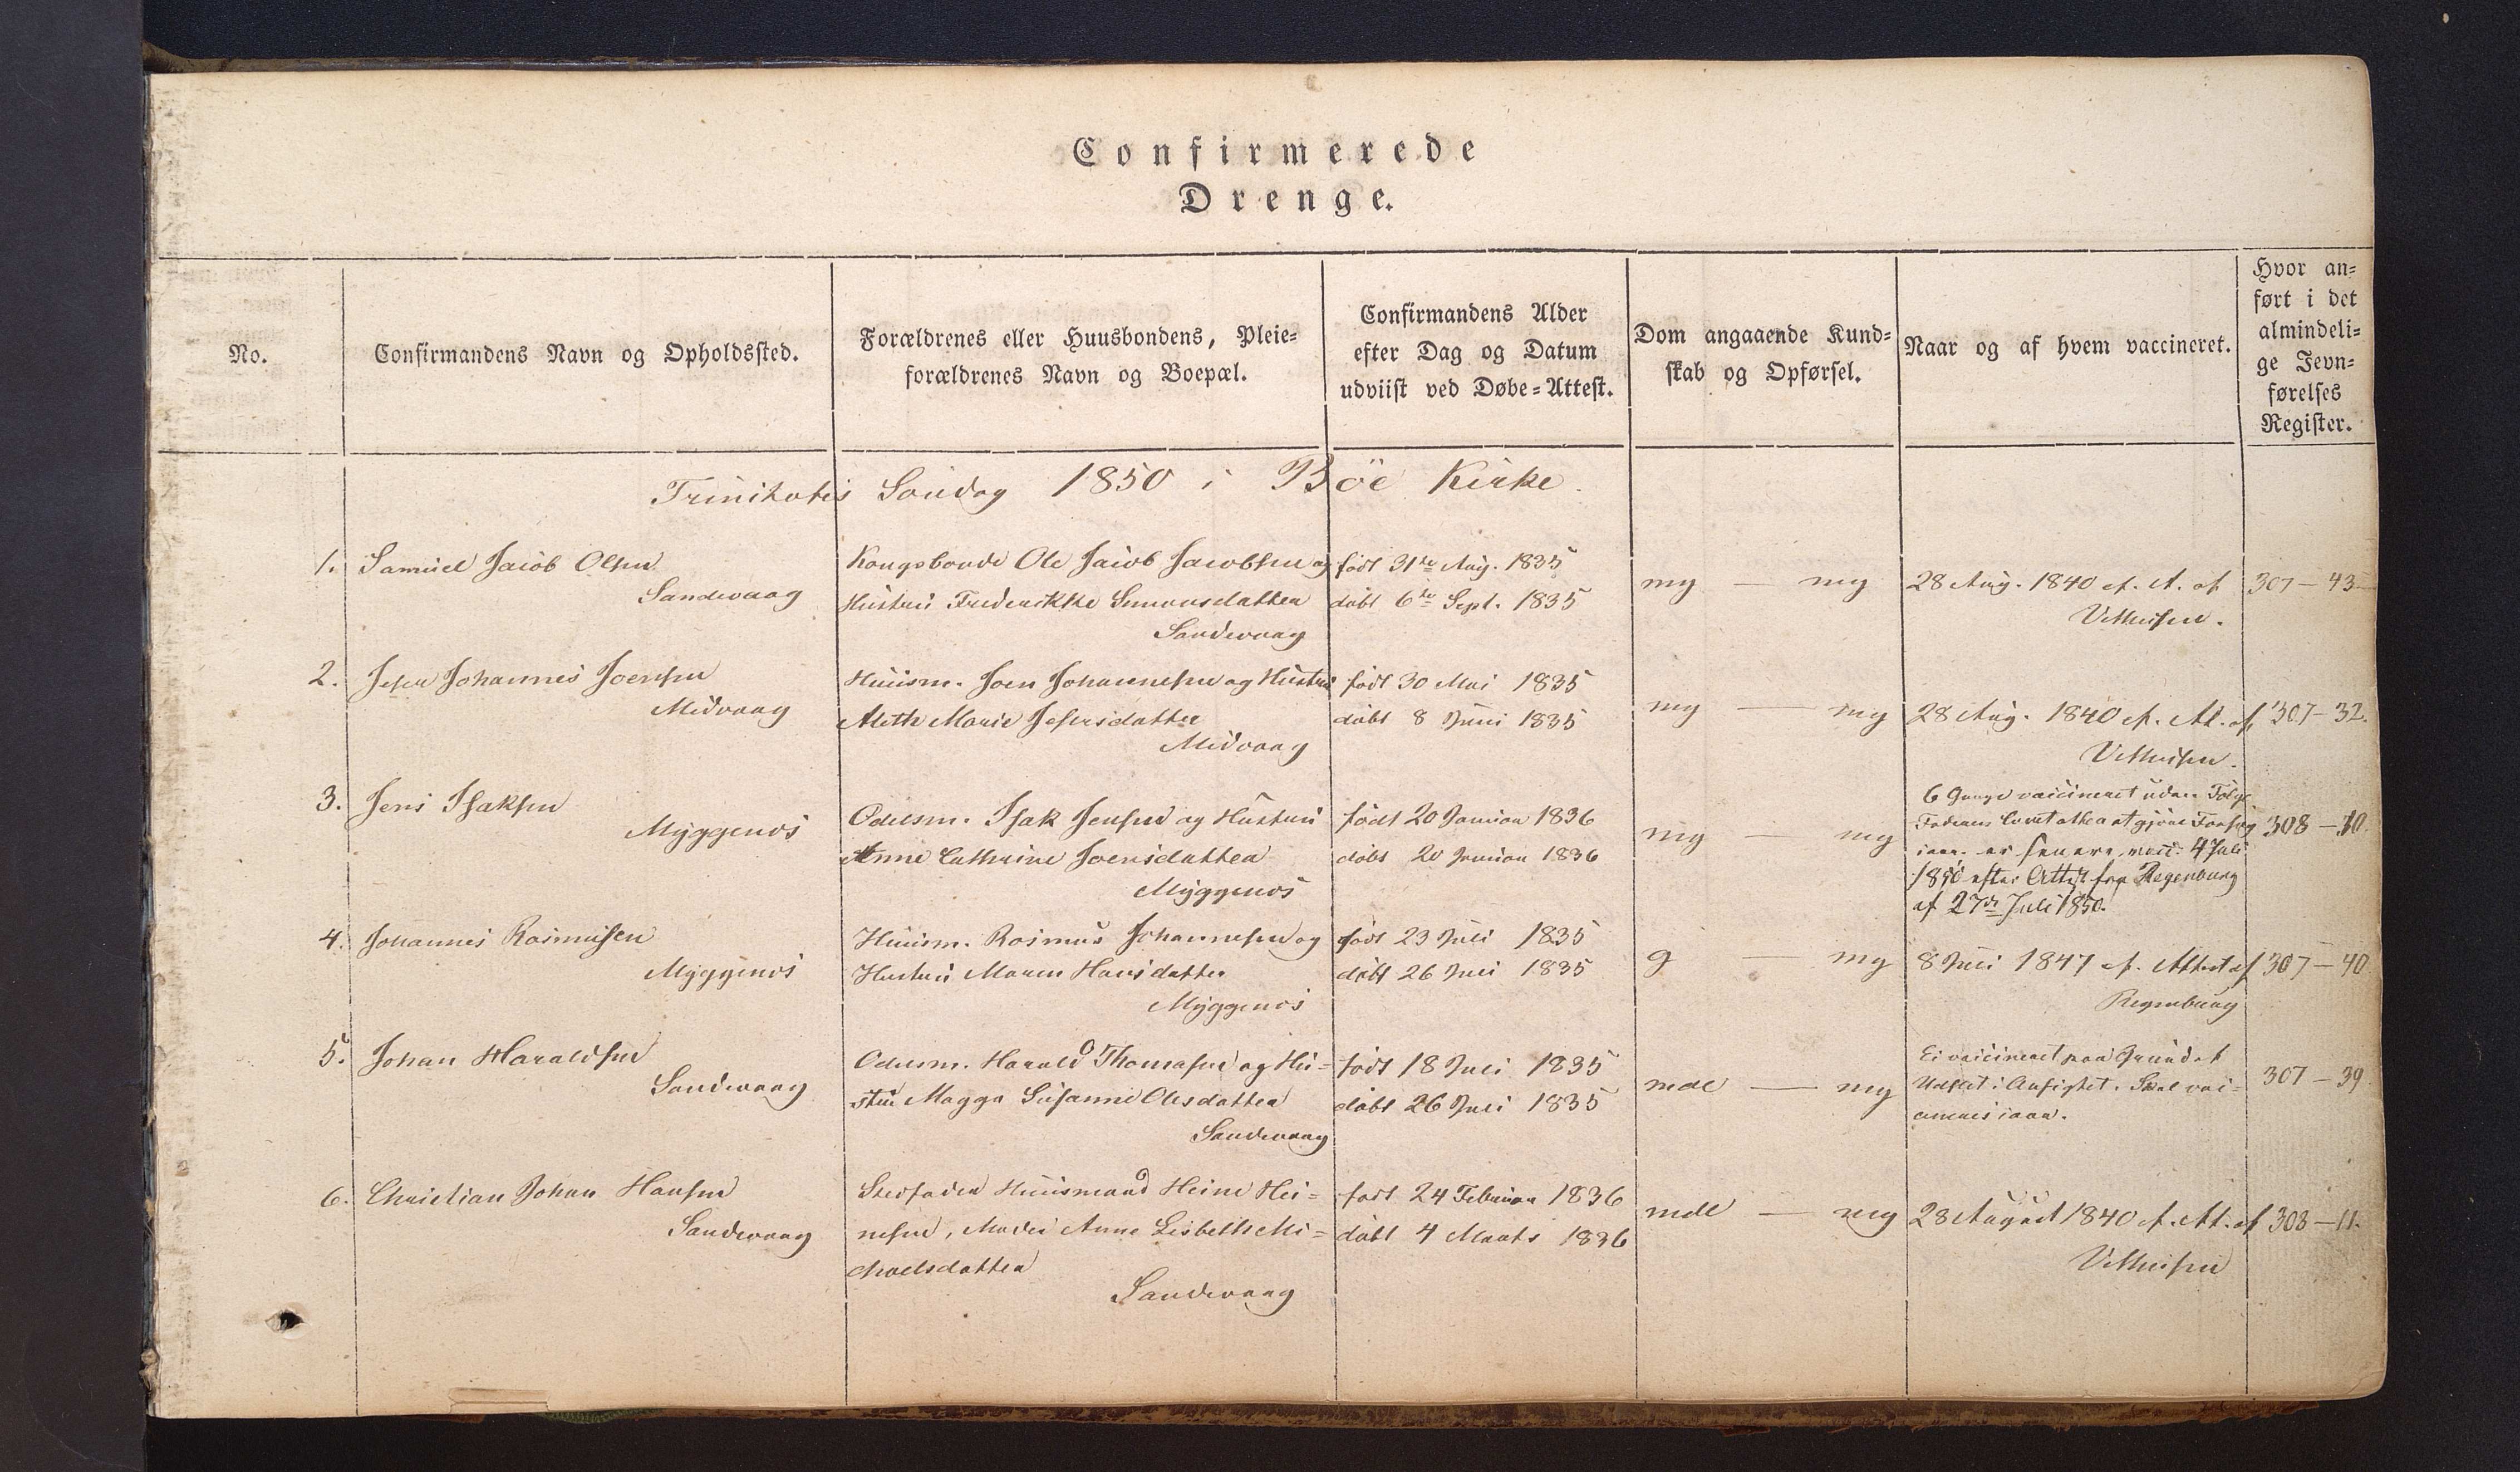 Confirmerede
Drenge.
No.
Confirmandens Navn og Opholdssted.
Forældrenes eller Huusbondens, Pleie-
forældrenes Navn og Boepæl.
Confirmandens Alder
efter Dag og Datum
udviist ved Døbe-Attest.
Dom angaaende Kund-
skab og Opførsel.
Naar og af hvem vaccineret.
Hvor an-
ført i det
almindeli-
ge Jevn-
førelses
Register.
Trinitatis Søndag 1850 i Böe Kirke
1. Samuel Jacob Olsen
Sandevaag
Kongsbonde Ole Jacob Jacobsen og
Hustru Frederikke Simonsdatter
Sandevaag
født 31te Aug. 1835
døbt 6te Sept. 1835
mg — mg
28 Aug. 1840 ef. A. af
307 – 43
2. Johannes Joensen
Midvaag
Huusm. Joen Johannesen og Hustru
Marie
Midvaag
født 30 Mai 1835
døbt 8 Juni 1835
mg — mg
28 Aug. 1840 ef. At. af
307 – 32.
3. Jens Isaksen
Myggenæs
Odelsm. Isak Jensen og Hustru
Anne Cathrine Joensdatter
Myggenæs
født 20 Januar 1836
døbt 20 Januar 1836
mg — mg
6 Gange vaccineret uden Følge
Faderen lovet atter at gjøre Forsøg
iaar. er senere vacc. 4 Juli
1850 efter Attest fra Regenburg
af 27de Juli 1850.
308 – 10.
4. Johannes Rasmusen
Myggenæs
Huusm. Rasmus Johannesen og
Hustru Maren Hansdatter
Myggenæs
født 23 Juli 1835
døbt 26 Juli 1835
g — mg
8 Juli 1847 ef. Attest af
Regenburg
307 – 40
5. Johan Haraldsen
Sandevaag
Odelsm. Harald Thomasen og Hu-
stru Magga Susanne Olesdatter
Sandevaag
født 18 Juli 1835
døbt 26 Juli 1835
mdl — mg
Ei vaccineret paa Grund af
Udslet i Ansigtet. Skal vac-
cineres iaar.
307 – 39
6. Christian Johan Hansen
Sandevaag
Stedfader Huusmand Heine Hei-
nesen, Moder Anne Lisbeth Mi-
chaelsdatter
Sandevaag
født 24 Februar 1836
døbt 4 Marts 1836
mdl — mg
28 August 1840 ef. At. af
308 – 11.